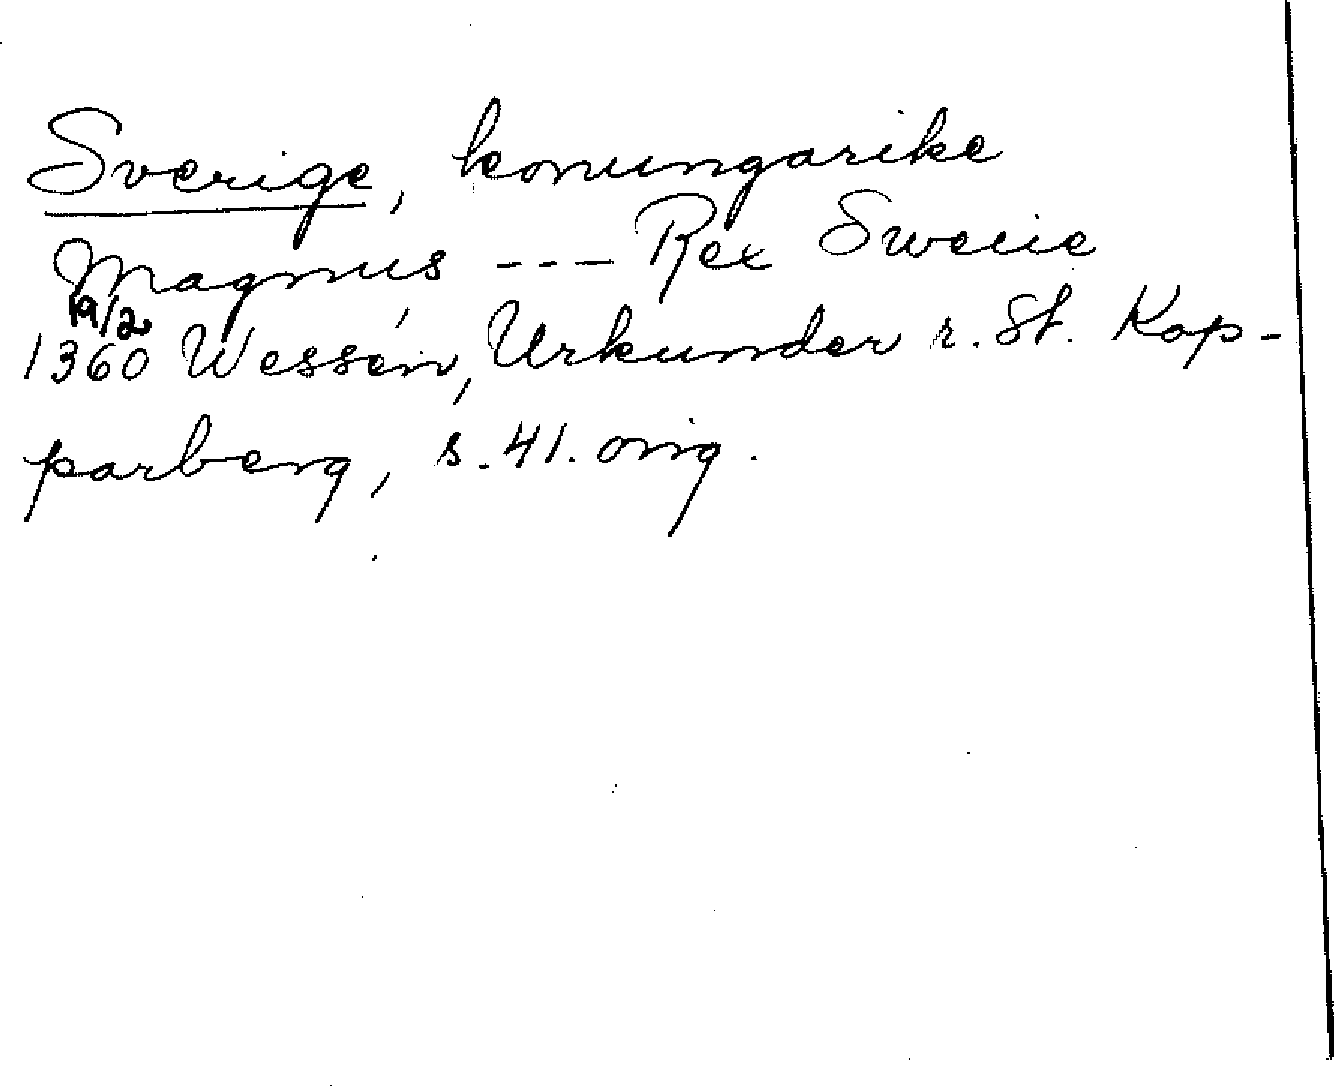 Sverige, konungarike
Magnus --- Rex Sweiie
19/2
1360 Wessén, Urkunder r. St. Kop-
parberg, s. 41. orig.